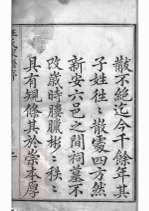 散不絶迄今千餘年其
子姓徃〻散處四方然
新安六邑之間祠墓不
改歲時臘彬〻秩〻
具有規條其於崇本厚